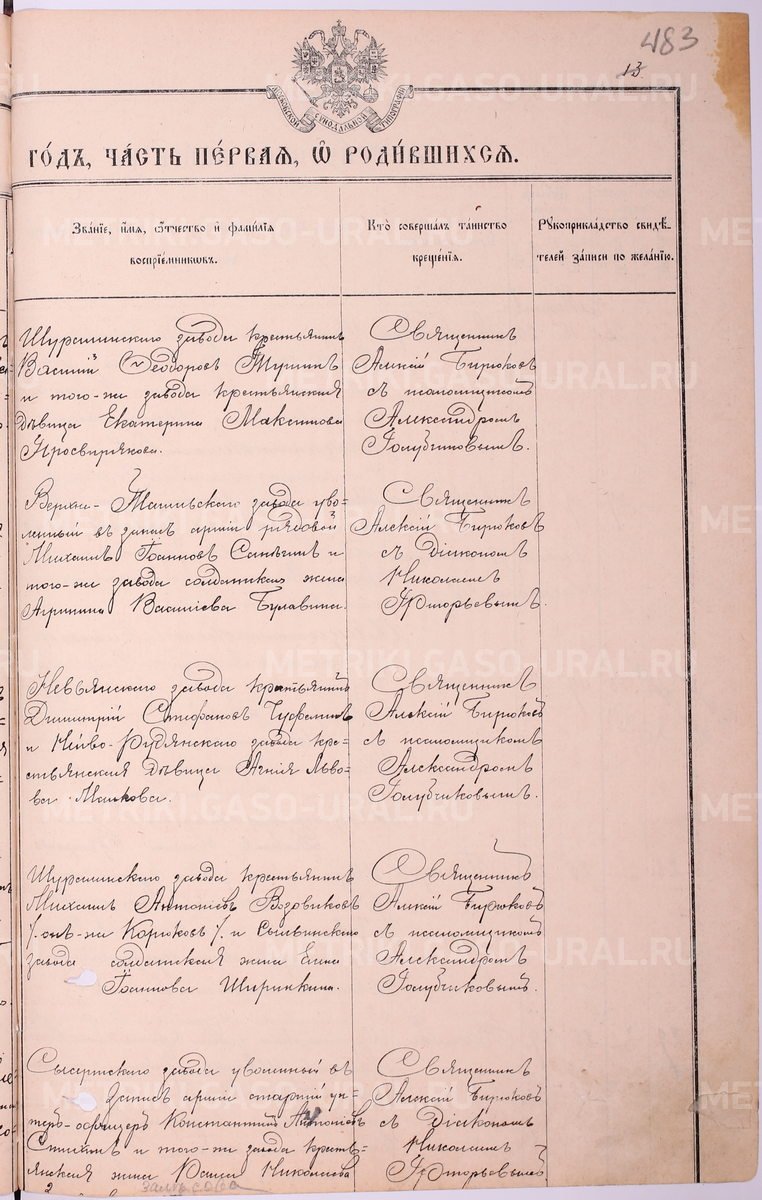 483
13
МОСКОВСКОЙ СѴНОДАЛЬНОЙ ТИПОГРАФІИ
ГОДЪ, ЧАСТЬ ПЕРВАЯ, Ѡ РОДИВШИХСЯ.
Званіе, имя, ѿчество и фамилія воспріемниковъ.
Кто совершалъ таинство крещенія.
Рукоприкладство свидѣтелей записи по желанію.
Шуралинскаго завода крестьянинъ
Василій Ѳеодоровъ Тупинъ
и того-же завода крестьянская
дѣвица Екатерина Максимова
Просвирякова.
Священникъ
Алексій Бирюковъ
съ псаломщикомъ
Александромъ
Голубчиковымъ.
Верхне-Тагильскаго завода уво-
ленный въ запасъ арміи рядовой
Михаилъ Іоанновъ
того-же завода солдатская жена
Агрипина Василіева Булавина.
Священникъ
Алексій Бирюковъ
съ Діакономъ
Николаемъ
Григорьевымъ.
Невьянскаго завода крестьянинъ
Димитрій Стефановъ
и Нейво-Рудянскаго завода кре-
стьянская дѣвица Агнія Льво-
ва Махова.
Священникъ
Алексій Бирюковъ
съ псаломщикомъ
Александромъ
Голубчиковымъ.
Шуралинскаго завода крестьянинъ
Михаилъ Антоніевъ Возовиковъ
/:онъ-же Корюковъ:/ и Сылвинскаго
завода солдатская жена Елена
Іоаннова Ширинкина.
Священникъ
Алексій Бирюковъ
съ псаломщикомъ
Александромъ
Голубчиковымъ.
Сысертскаго завода уволенный въ
запасъ арміи старшій ун-
теръ-офицеръ Константинъ Антоніевъ
и того-же завода кресть-
янская жена Раиса Николаева
Священникъ
Алексій Бирюковъ
съ Діакономъ
Николаемъ
Григорьевымъ
METRIKI.GASO-URAL.RU